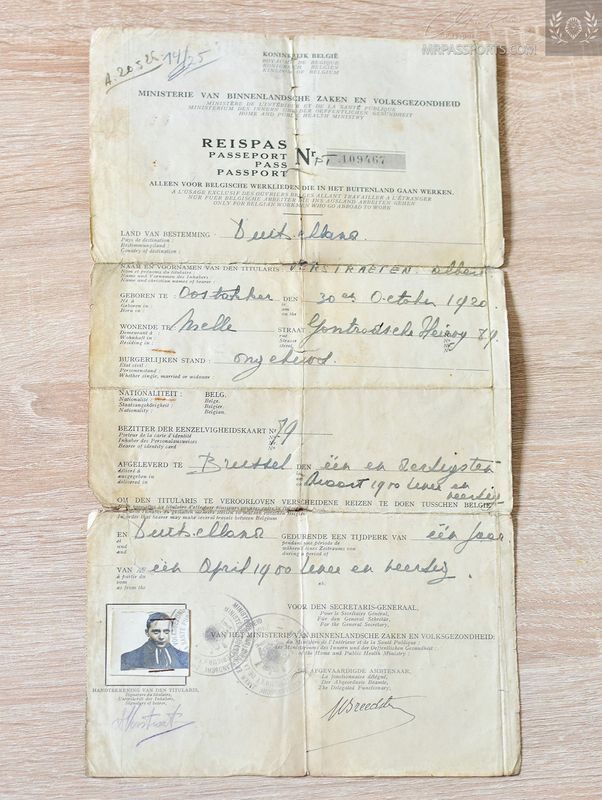 MRPASSPORTS.COM
A. 20525 14/25
KONINKRIJK BELGIË
ROYAUME DE BELGIQUE
KÖNIGREICH BELGIEN
KINGDOM OF BELGIUM
MINISTERIE VAN BINNENLANDSCHE ZAKEN EN VOLKSGEZONDHEID
MINISTÈRE DE L'INTÉRIEUR ET DE LA SANTÉ PUBLIQUE
MINISTERIUM DES INNERN UND DER OEFFENTLICHEN GESUNDHEIT
HOME AND PUBLIC HEALTH MINISTRY
REISPAS
PASSEPORT
PASS
PASSPORT
Nr 109467
ALLEEN VOOR BELGISCHE WERKLIEDEN DIE IN HET BUITENLAND GAAN WERKEN.
A L'USAGE EXCLUSIF DES OUVRIERS BELGES ALLANT TRAVAILLER A L'ÉTRANGER
NUR FUER BELGISCHE ARBEITER DIE INS AUSLAND ARBEITEN GEHEN
ONLY FOR BELGIAN WORKMEN WHO GO ABROAD TO WORK
LAND VAN BESTEMMING : Duitschland.
Pays de destination :
Bestimmungsland :
Country of destination :
NAAM EN VOORNAMEN VAN DEN TITULARIS VERSTRAETEN Albert
Nom et prénoms du titulaire
Name und Vornamen des Inhabers
Name and christian names of bearer :
GEBOREN TE : Oostakker DEN 30en October 1920
Né à le
Geboren in am
Born in on the
WONENDE TE : Melle STRAAT Gontrodsche Heirweg 79.
Demeurant à rue
Wohnhaft in Strasse
Residing in : street
BURGERLIJKEN STAND : ongehuwd.
Etat civil :
Personenstand :
Whether single, married or widower
NATIONALITEIT : BELG.
Nationalité : Belge.
Staatsangehörigkeit : Belgier.
Nationality : Belgian.
BEZITTER DER EENZELVIGHEIDSKAART Nr 79
Porteur de la carte d'identité No
Inhaber des Personalausweises Nr
Bearer of identity card No
AFGELEVERD TE : Brussel DEN één en dertigsten
délivré à le
ausgegeben in am
delivered in on
Maart 1900 twee en veertig
OM DEN TITULARIS TE VEROORLOVEN VERSCHEIDENE REIZEN TE DOEN TUSSCHEN BELGIË
In order that bearer may make several travels between Belgium
EN Duitschland GEDURENDE EEN TIJDPERK VAN één jaar
et pendant une période de
und während eines Zeitraums von
and during a period of
VAN AF één April 1900 twee en veertig.
à partir du
vom ab.
as from the
VOOR DEN SECRETARIS-GENERAAL,
Pour le Secrétaire Général,
Für den General Sekretär,
For the General Secretary,
VAN HET MINISTERIE VAN BINNENLANDSCHE ZAKEN EN VOLKSGEZONDHEID:
du Ministère de l'Intérieur et de la Santé Publique
des Ministeriums des Innern und der Oeffentlichen Gesundheit :
of the Home and Public Health Ministry :
AFGEVAARDIGDE AMBTENAAR,
Le fonctionnaire délégué,
Der Abgeordnete Beamte,
The Delegated Functionary,
HANDTEEKENING VAN DEN TITULARIS,
Signature du titulaire,
Unterschrift des Inhabers,
Signature of bearer,